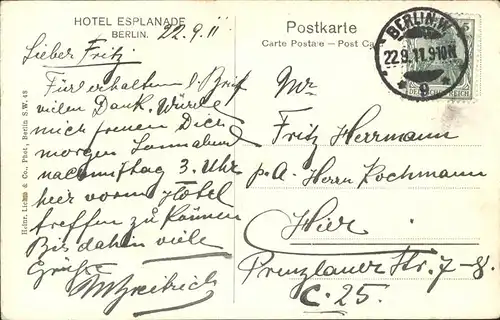 HOTEL ESPLANADE
BERLIN.
22.9.11
Lieber Fritz
Für erhaltenen l. Brief
vielen Dank. Würde
mich freuen Dich
morgen Sonnabend
nachmittag 3. Uhr
hier vorm Hôtel
treffen zu können
Bis dahin viele
Grüße
Heinr. & Co., Phot., Berlin S.W. 48
Postkarte
Carte Postale — Post Ca
BERLIN.W.
22.9.11.9-10N
9
5
DEUTSCHES REICH
Fritz Herrmann
p.A. Herrn Kochmann
Hier
Prenzlauer Str. 7-8.
C. 25.